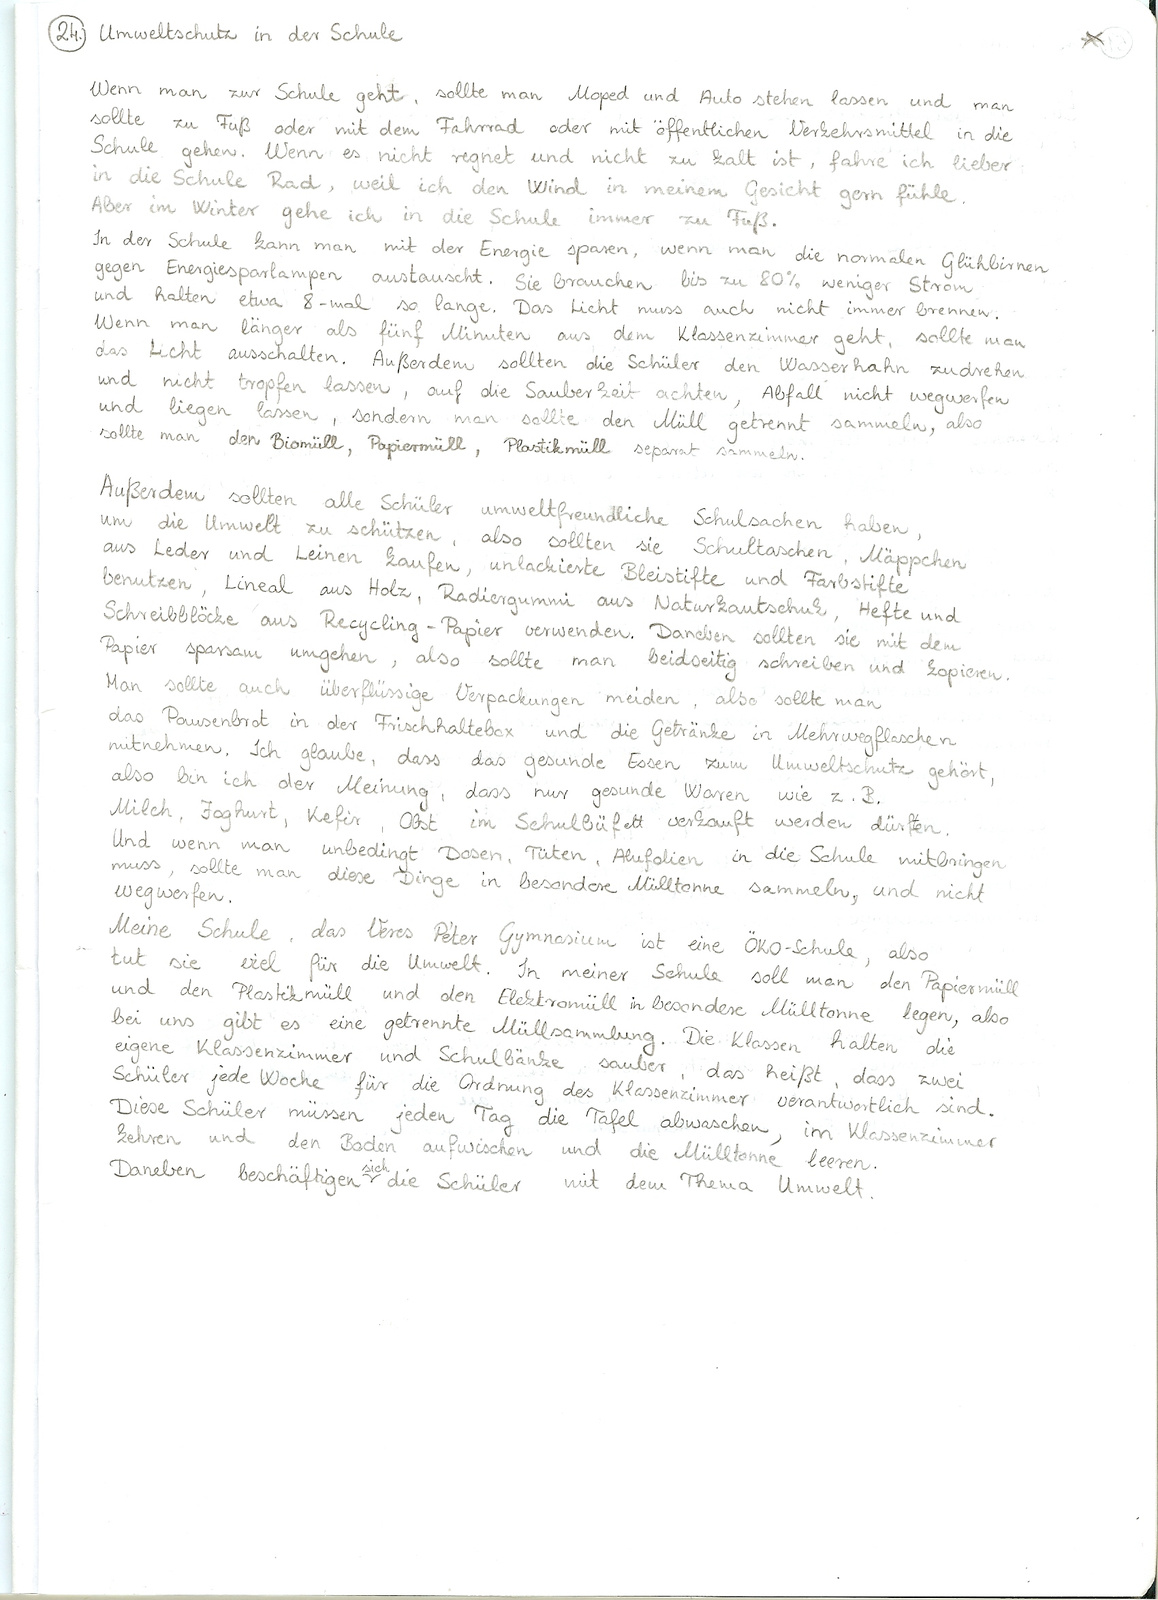 24. Umweltschutz in der Schule
Wenn man zur Schule geht, sollte man Moped und Auto stehen lassen und man
sollte zu Fuß oder mit dem Fahrrad oder mit öffentlichen Verkehrsmittel in die
Schule gehen. Wenn es nicht regnet und nicht zu kalt ist, fahre ich lieber
in die Schule Rad, weil ich den Wind in meinem Gesicht gern fühle.
Aber im Winter gehe ich in die Schule immer zu Fuß.
In der Schule kann man mit der Energie sparen, wenn man die normalen Glühbirnen
gegen Energiesparlampen austauscht. Sie brauchen bis zu 80% weniger Strom
und halten etwa 8-mal so lange. Das Licht muss auch nicht immer brennen.
Wenn man länger als fünf Minuten aus dem Klassenzimmer geht, sollte man
das Licht ausschalten. Außerdem sollten die Schüler den Wasserhahn zudrehen
und nicht tropfen lassen, auf die Sauberkeit achten, Abfall nicht wegwerfen
und liegen lassen, sondern man sollte den Müll getrennt sammeln, also
sollte man den Biomüll, Papiermüll, Plastikmüll separat sammeln.
Außerdem sollten alle Schüler umweltfreundliche Schulsachen haben,
um die Umwelt zu schützen, also sollten sie Schultaschen, Mäppchen
aus Leder und Leinen kaufen, unlackierte Bleistifte und Farbstifte
benutzen, Lineal aus Holz, Radiergummi aus Naturkautschuk, Hefte und
Schreibblöcke aus Recycling-Papier verwenden. Daneben sollten sie mit dem
Papier sparsam umgehen, also sollte man beidseitig schreiben und kopieren.
Man sollte auch überflüssige Verpackungen meiden, also sollte man
das Pausenbrot in der Frischhaltebox und die Getränke in Mehrwegflaschen
mitnehmen. Ich glaube, dass das gesunde Essen zum Umweltschutz gehört,
also bin ich der Meinung, dass nur gesunde Waren wie z.B.
Milch, Joghurt, Kefir, Obst im Schulbüfett verkauft werden dürfen.
Und wenn man unbedingt Dosen, Tüten, Alufolien in die Schule mitbringen
muss, sollte man diese Dinge in besondere Mülltonne sammeln, und nicht
wegwerfen.
Meine Schule, das Veres Péter Gymnasium ist eine ÖKO-Schule, also
tut sie viel für die Umwelt. In meiner Schule soll man den Papiermüll
und den Plastikmüll und den Elektromüll in besondere Mülltonne legen, also
bei uns gibt es eine getrennte Müllsammlung. Die Klassen halten die
eigene Klassenzimmer und Schulbänke sauber, das heißt, dass zwei
Schüler jede Woche für die Ordnung des Klassenzimmer verantwortlich sind.
Diese Schüler müssen jeden Tag die Tafel abwaschen, im Klassenzimmer
kehren und den Boden aufwischen und die Mülltonne leeren.
Daneben beschäftigen sich die Schüler mit dem Thema Umwelt.